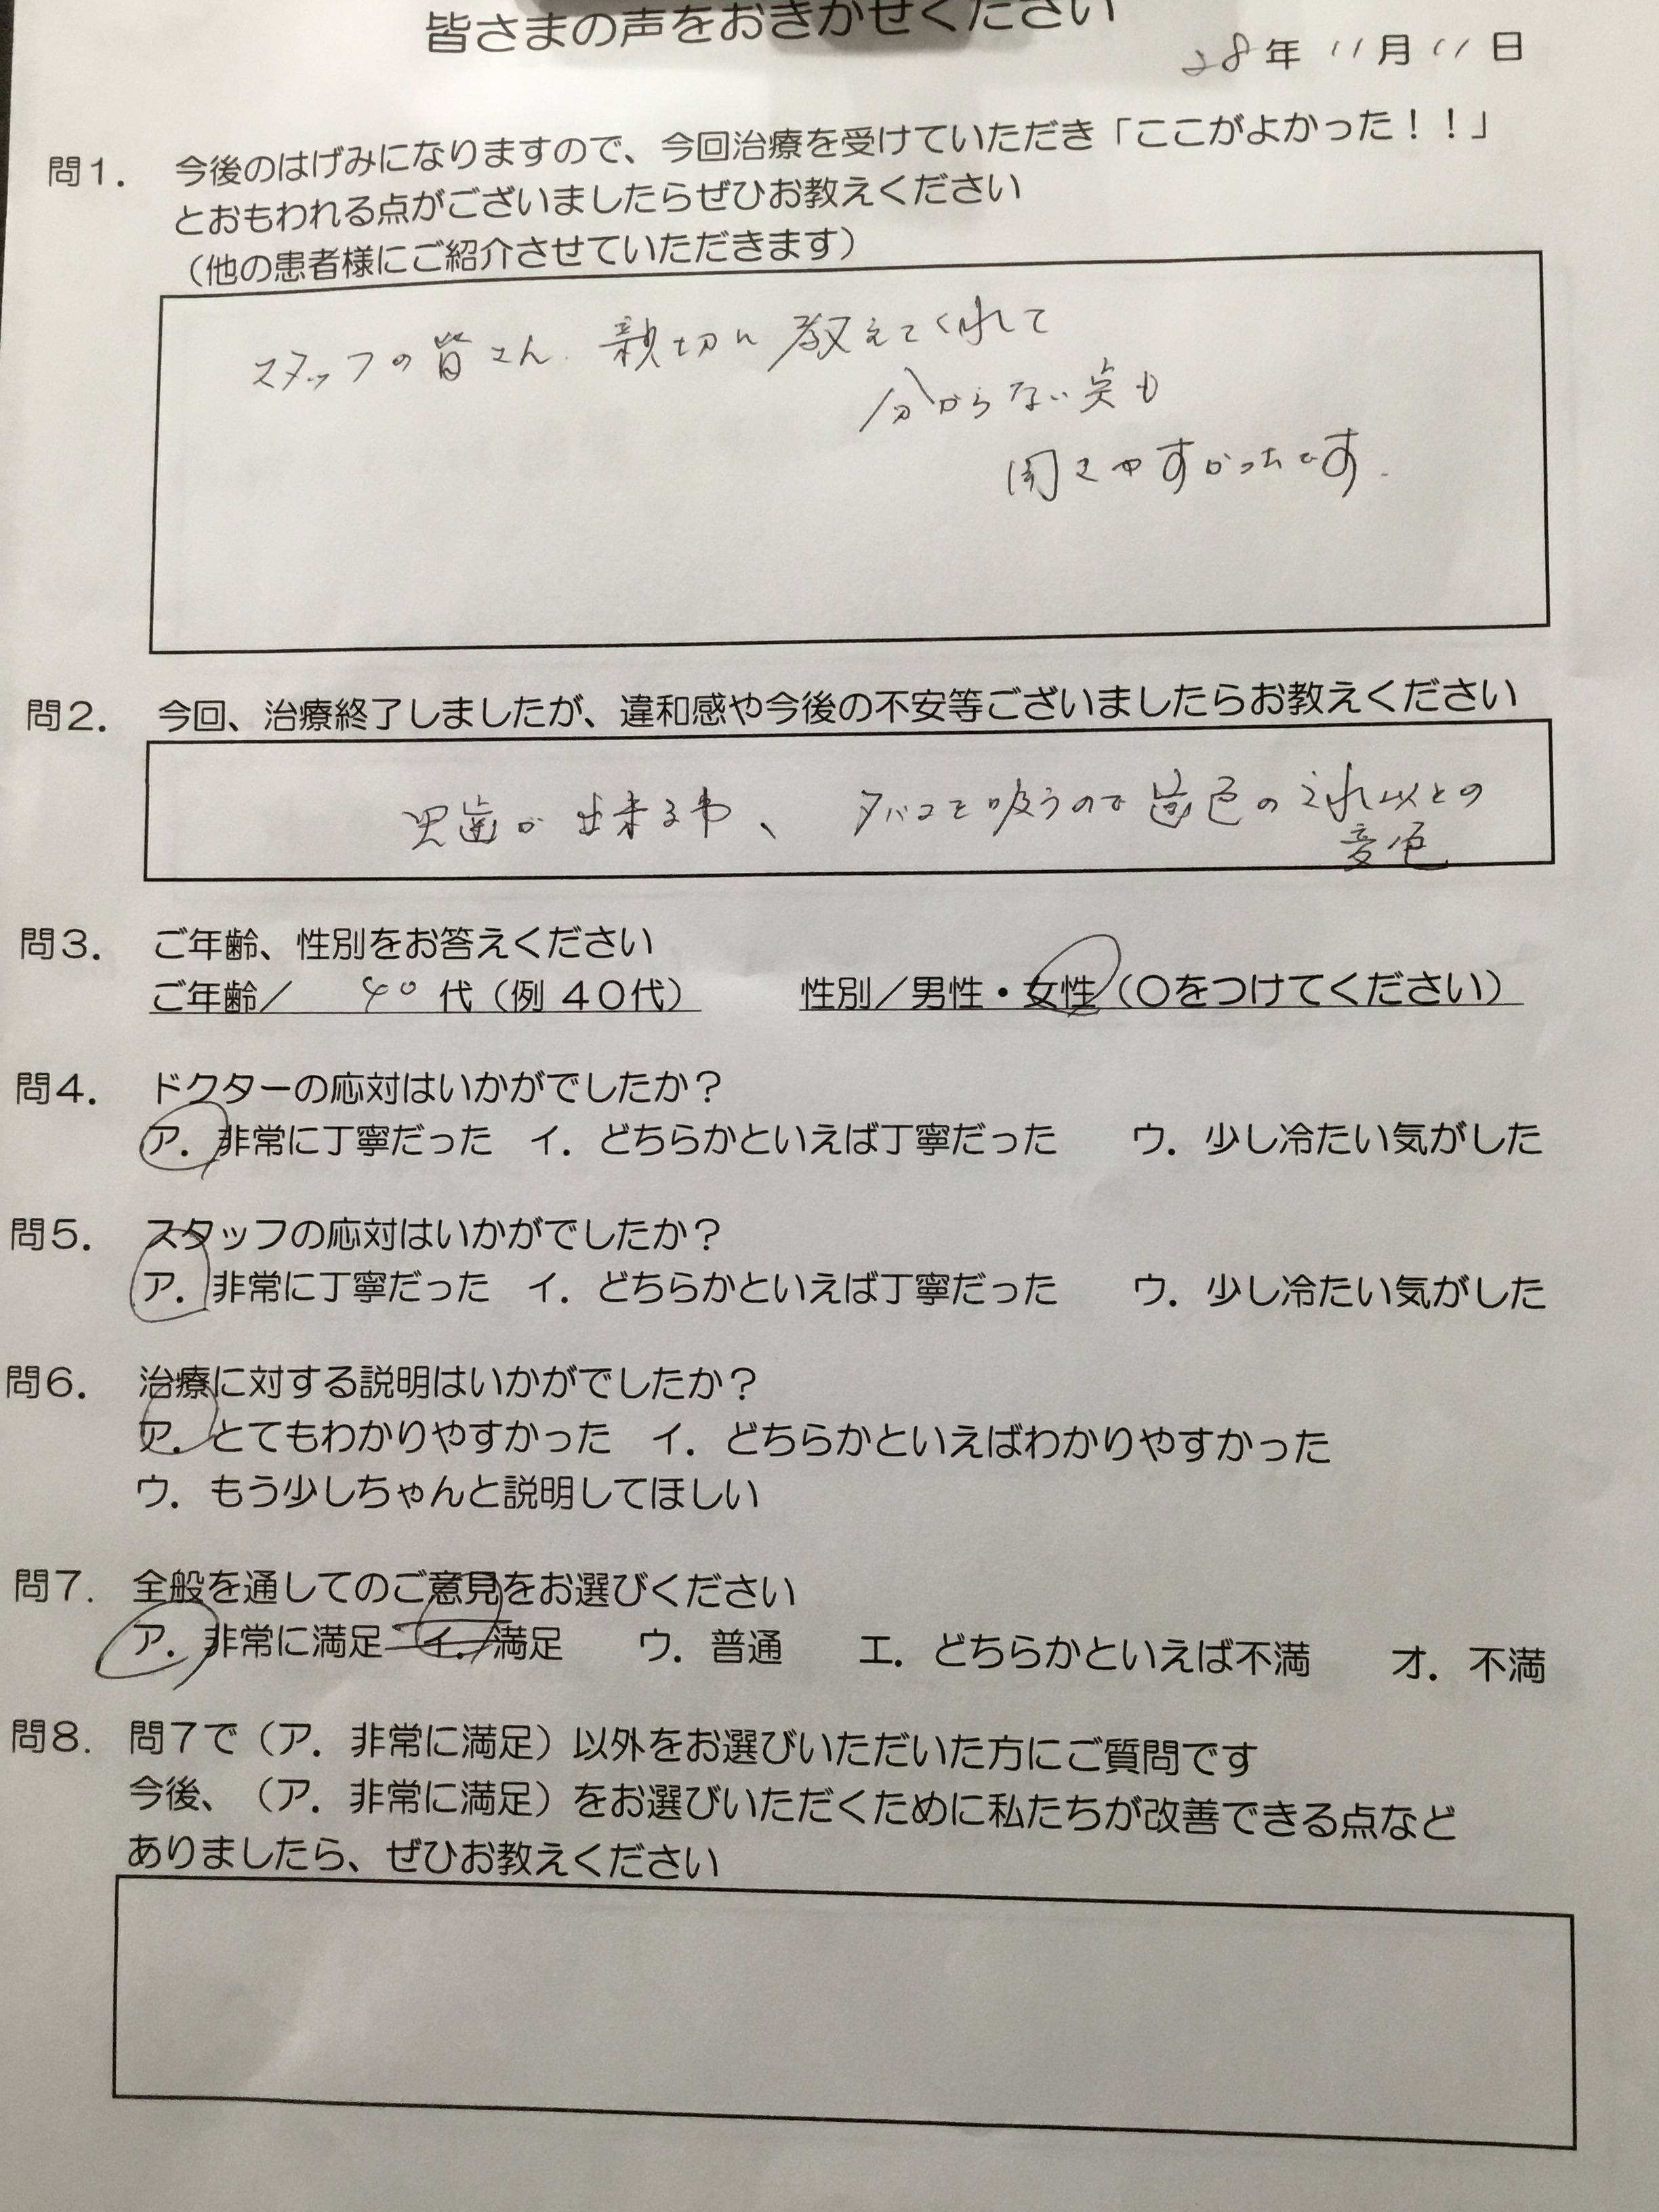 皆さまの声をおきかせください
28年 11月 11日
問1． 今後のはげみになりますので、今回治療を受けていただき「ここがよかった！！」
とおもわれる点がございましたらぜひお教えください
（他の患者様にご紹介させていただきます）
スタッフの皆さん、親切に教えてくれて
分からない点も
聞きやすかったです.
問2． 今回、治療終了しましたが、違和感や今後の不安等ございましたらお教えください
虫歯が出来る事、タバコを吸うので歯色のこれ以上の
変色
問3． ご年齢、性別をお答えください
ご年齢／ 40代（例 40代） 性別／男性・女性（〇をつけてください）
問4． ドクターの応対はいかがでしたか？
ア．非常に丁寧だった イ．どちらかといえば丁寧だった ウ．少し冷たい気がした
問5． スタッフの応対はいかがでしたか？
ア．非常に丁寧だった イ．どちらかといえば丁寧だった ウ．少し冷たい気がした
問6． 治療に対する説明はいかがでしたか？
ア．とてもわかりやすかった イ．どちらかといえばわかりやすかった
ウ．もう少しちゃんと説明してほしい
問7． 全般を通してのご意見をお選びください
ア．非常に満足 イ．満足 ウ．普通 エ．どちらかといえば不満 オ．不満
問8． 問7で（ア．非常に満足）以外をお選びいただいた方にご質問です
今後、（ア．非常に満足）をお選びいただくために私たちが改善できる点など
ありましたら、ぜひお教えください